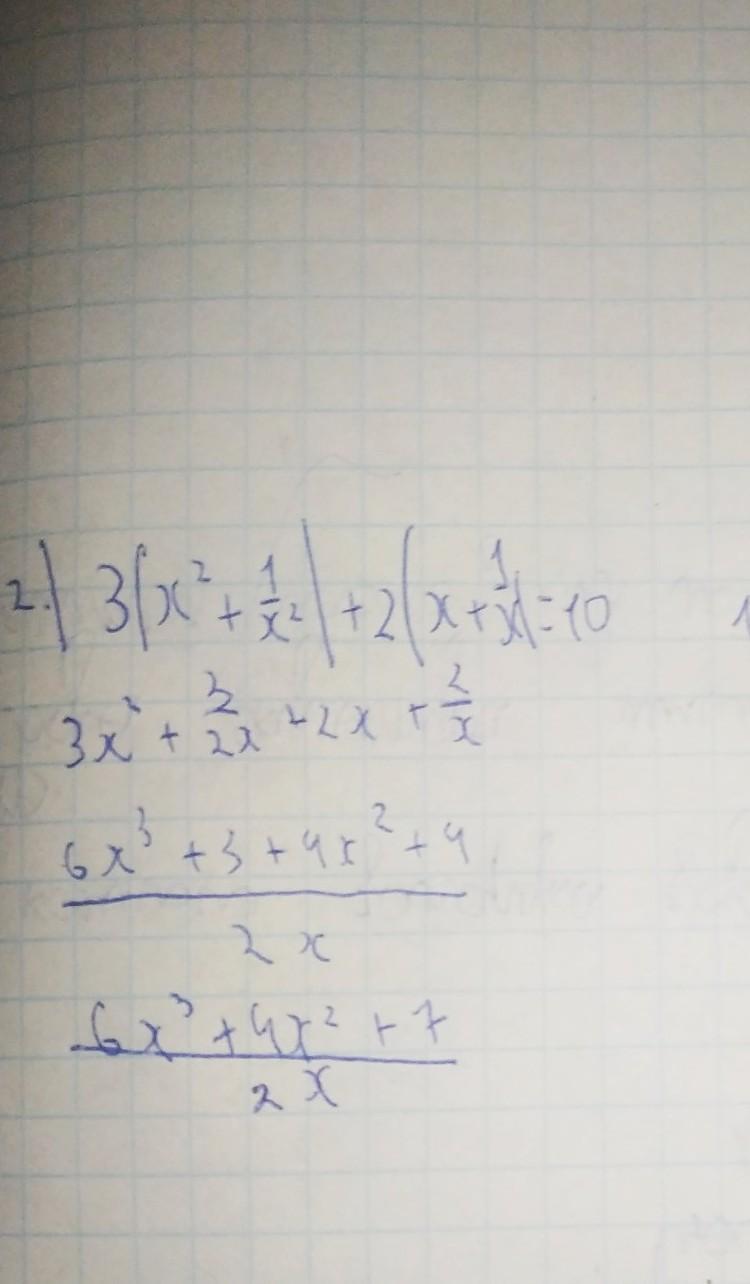 2.) 3(x² + 1/x²) + 2(x + 1/x) = 10
3x² + 3/2x + 2x + 2/x
6x³ + 3 + 4x² + 4 / 2x
6x³ + 4x² + 7 / 2x